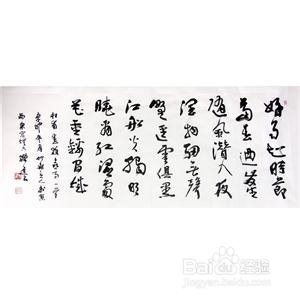 好雨知時節
當春乃發生
隨風潛入夜
潤物細無聲
野徑雲俱黑
江船火獨明
曉看紅濕處
花重錦官城
杜甫春夜喜雨一首
Baidu 经验